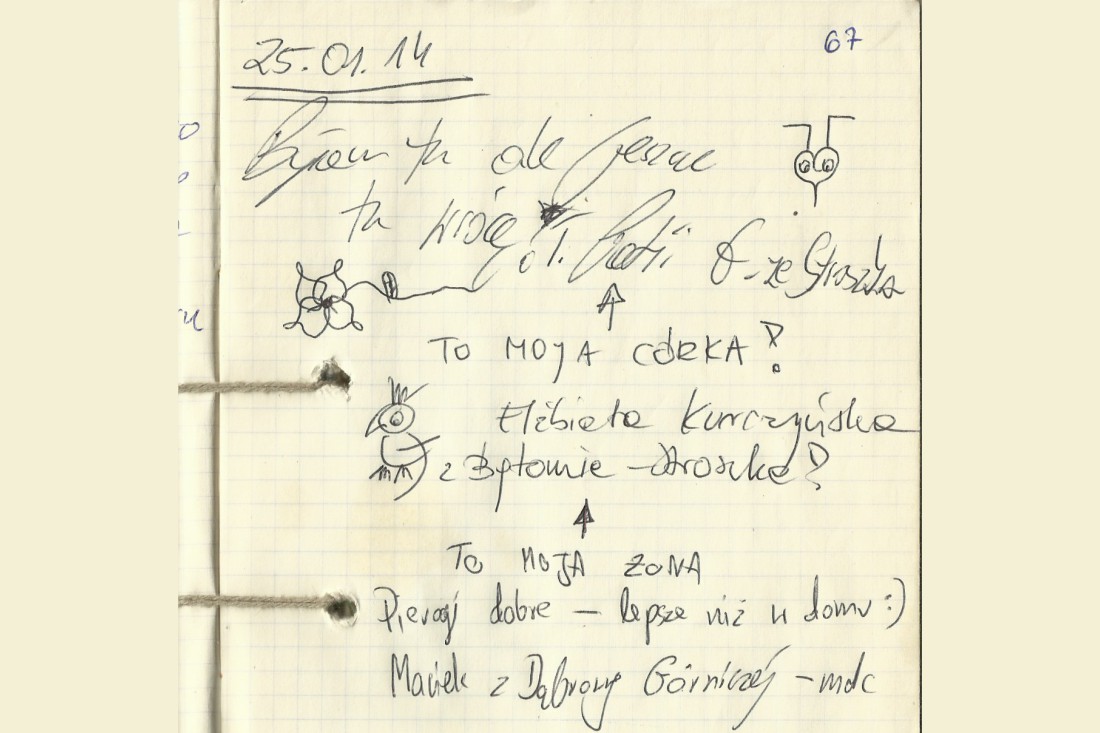 25.01.14
67
Byłam tu ale jeszcze
tu wrócę
ze Stroszka
TO MOJA CÓRKA!
Elżbieta Kurczyńska
z Bytomia - Stroszka!
TO MOJA ŻONA
Pierogi dobre - lepsze niż w domu :)
Maciek z Dąbrowy Górniczej - mdc